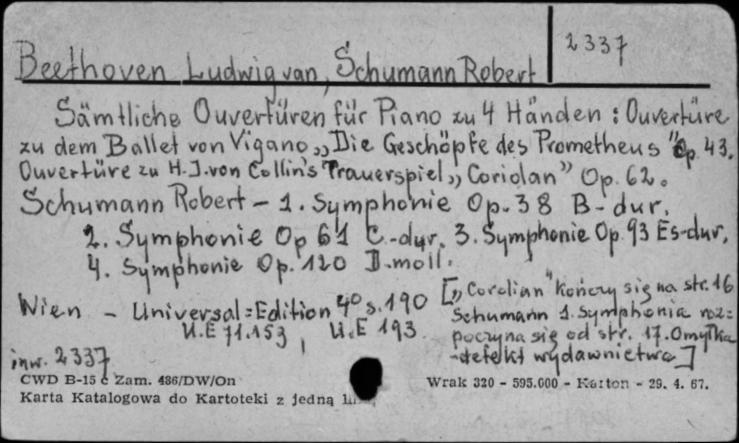 2337
Beethoven Ludwig van, Schumann Robert
Sämtliche Ouvertüren für Piano zu 4 Händen : Ouvertüre
zu dem Ballet von Vigano „Die Geschöpfe des Prometheus" Op. 43.
Ouvertüre zu H.J. von Collin's Trauerspiel „Coriolan" Op. 62.
Schumann Robert - 1. Symphonie Op. 38 B-dur.
2. Symphonie Op 61 C.-dur. 3. Symphonie Op. 93 Es-dur.
4. Symphonie Op. 120 D.moll.
Wien - Universal=Edition 4° s. 190
U.E 71.153, U.E 193
[„Corolian" kończy się na str. 16
Schumann 1. Symphonia roz=
poczyna się od str. 17. Omyłka
-defekt wydawnictwa]
inw. 2337
CWD B-15 c Zam. 486/DW/On
Wrak 320 - 595.000 - Karton - 29. 4. 67.
Karta Katalogowa do Kartoteki z jedną